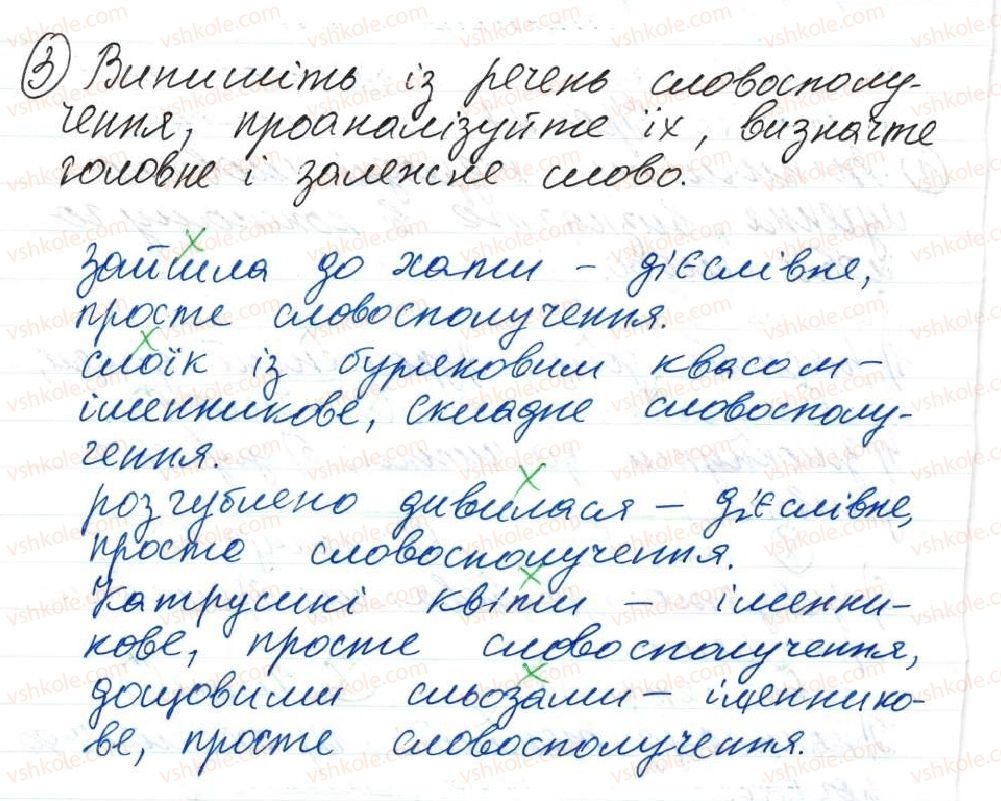 3) Випишіть із речень словосполу-
чення, проаналізуйте їх, визначте
головне і залежне слово.
х
зайшла до хати – дієслівне,
просте словосполучення.
х
слоїк із буряковим квасом –
іменникове, складне словосполу-
чення.
х
розгублено дивилася – дієслівне,
просте словосполучення.
х
Катрушині квіти – іменни-
кове, просте словосполучення,
х
дощовими сльозами – іменнико-
ве, просте словосполучення.